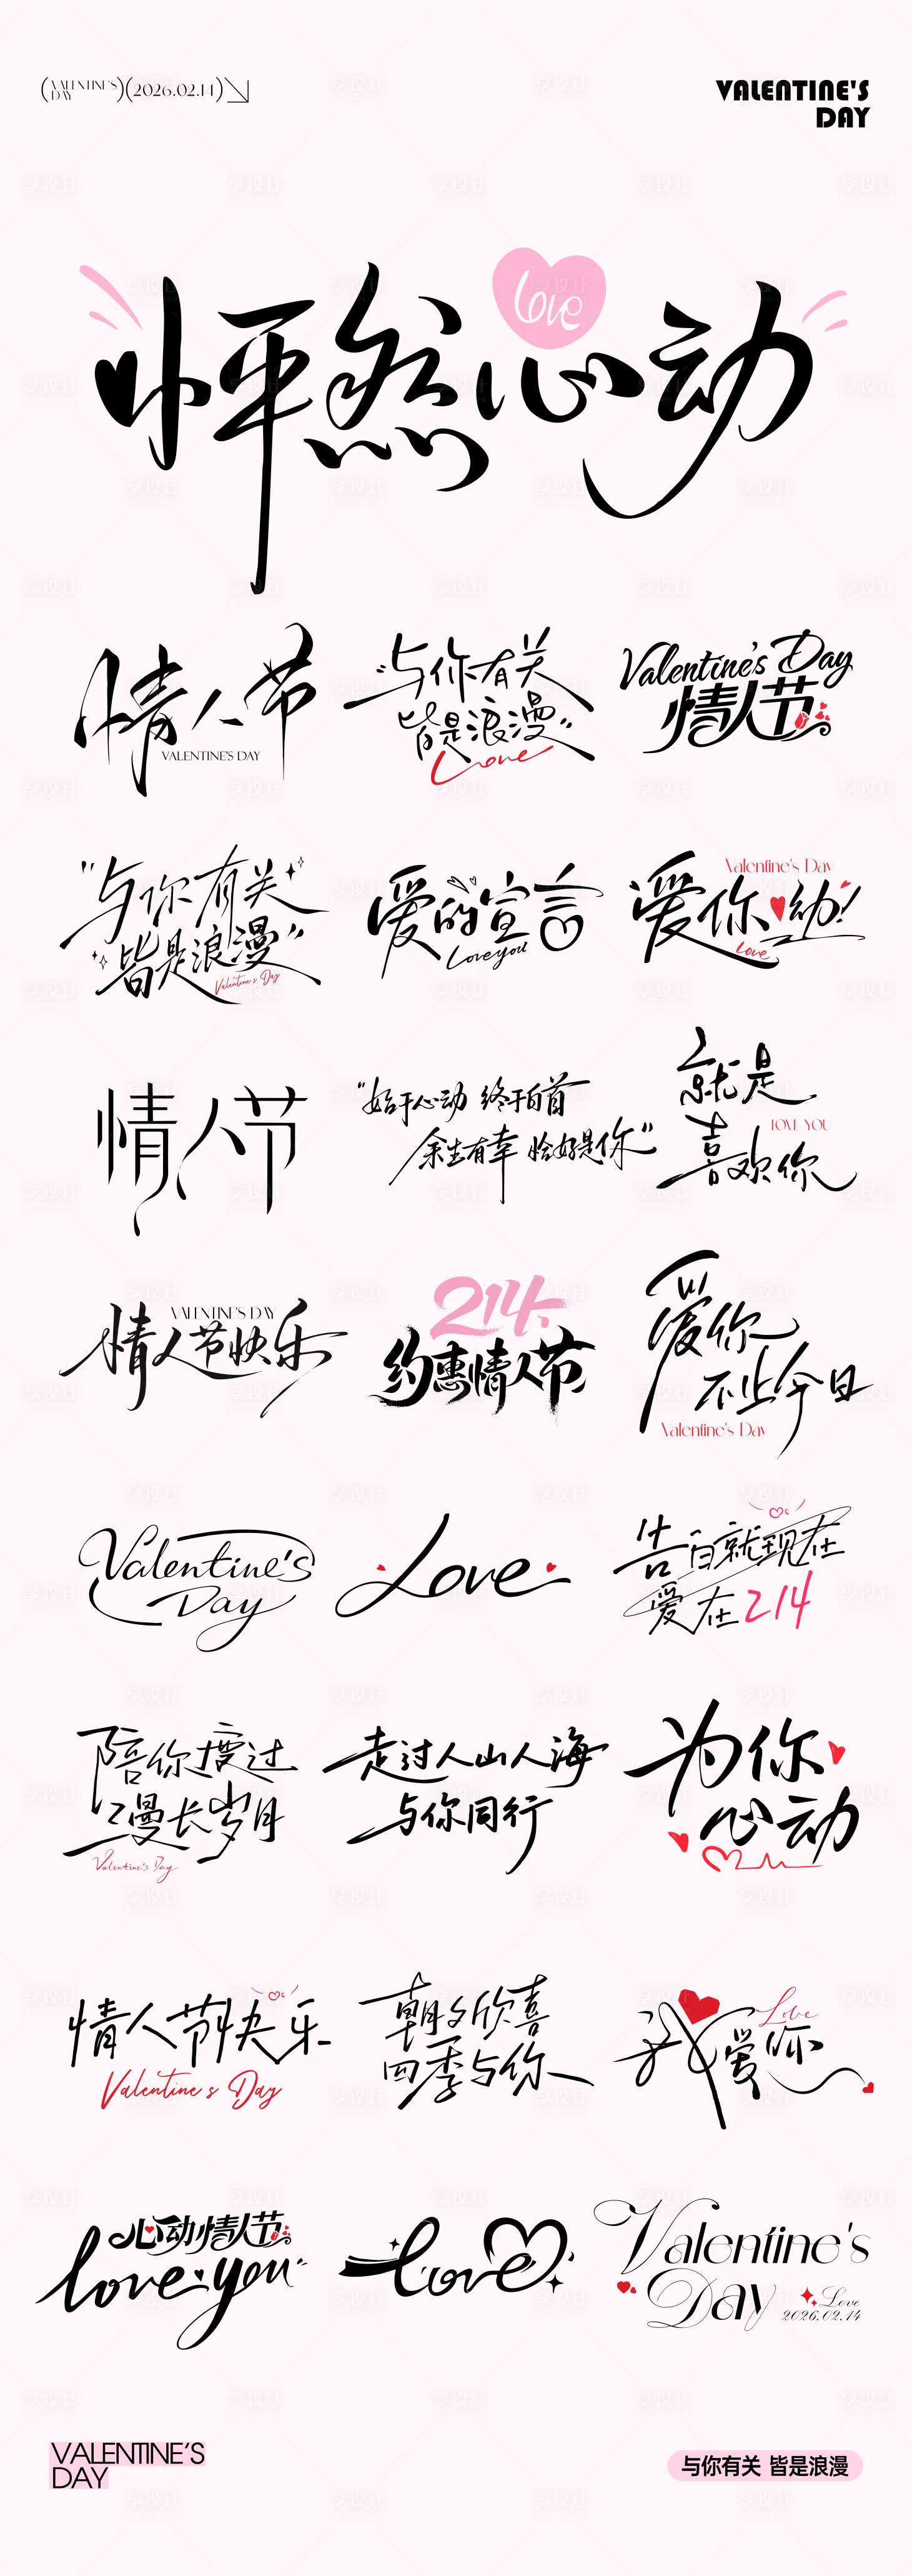 (VALENTINE'S DAY)(2026.02.14)
VALENTINE'S
DAY
love
怦然心动
情人节
VALENTINE'S DAY
与你有关
皆是浪漫
Love
Valentine's Day
情人节
"与你有关
皆是浪漫"
Valentine's Day
爱的宣言
Love you
Valentine's Day
爱你心动!
Love
情人节
"始于心动 终于白首
余生有幸 恰好是你"
就是
LOVE YOU
喜欢你
VALENTINE'S DAY
情人节快乐
214.
约惠情人节
爱你
不止今日
Valentine's Day
Valentine's
Day
Love
告白就现在
爱在214
陪你度过
漫长岁月
Valentine's Day
走过人山人海
与你同行
为你
心动
情人节快乐
Valentine's Day
朝夕欣喜
四季与你
Love
我爱你
心动情人节
love you
love
Valentine's
Day
Love
2026.02.14
VALENTINE'S
DAY
与你有关 皆是浪漫
享设计